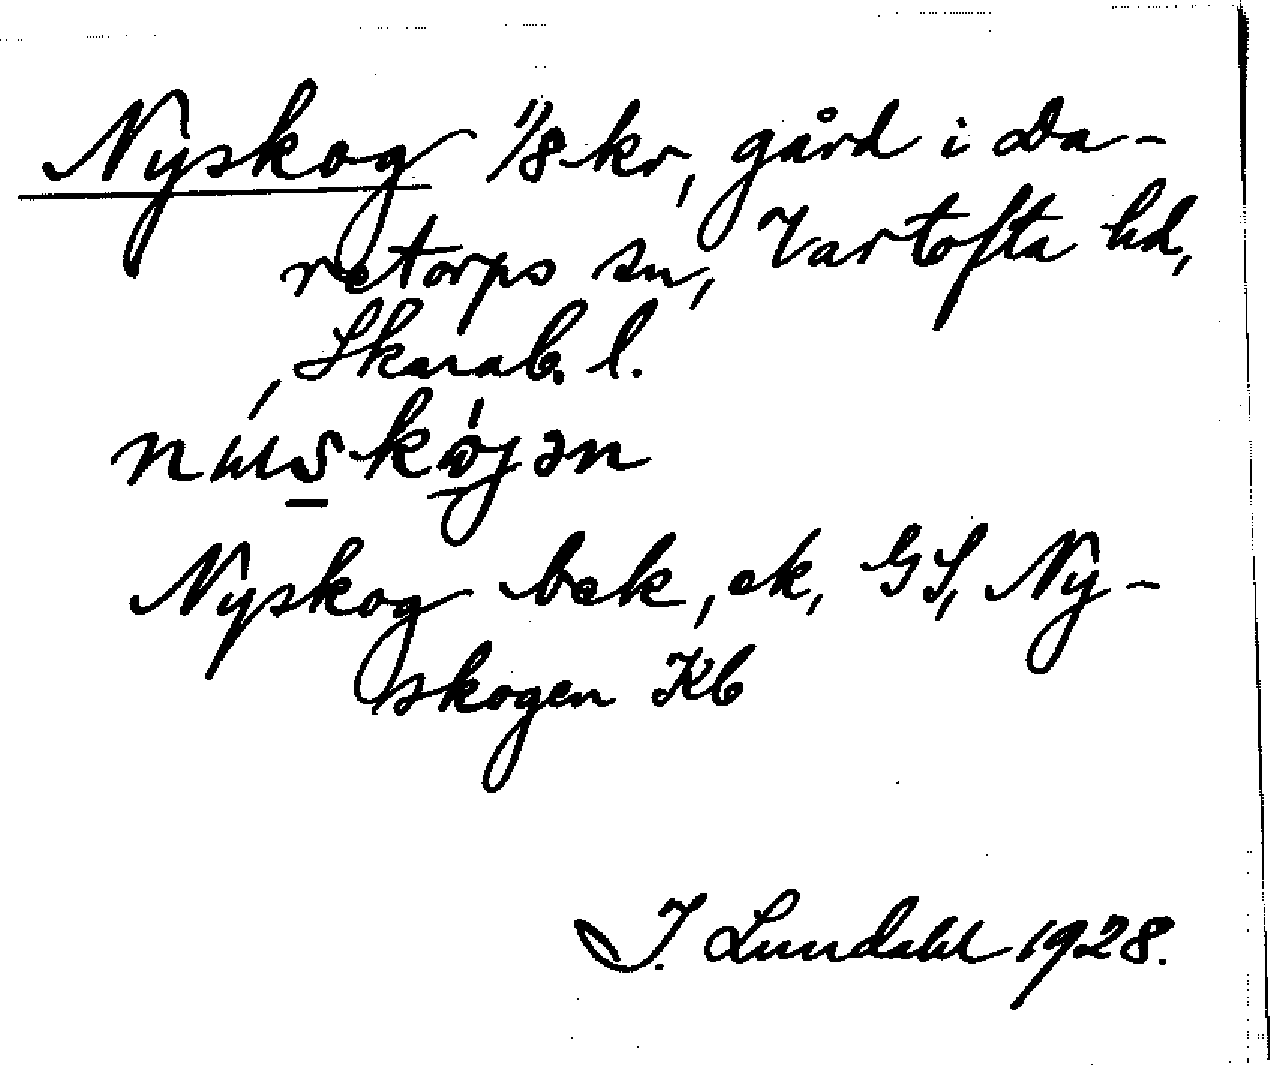 Nyskog 1/8 kr, gård i Da-
retorps sn, Vartofta hd,
Skarab. l.
Nyskog bek, ek, GS, Ny-
skogen Kb
I. Lundahl 1928.